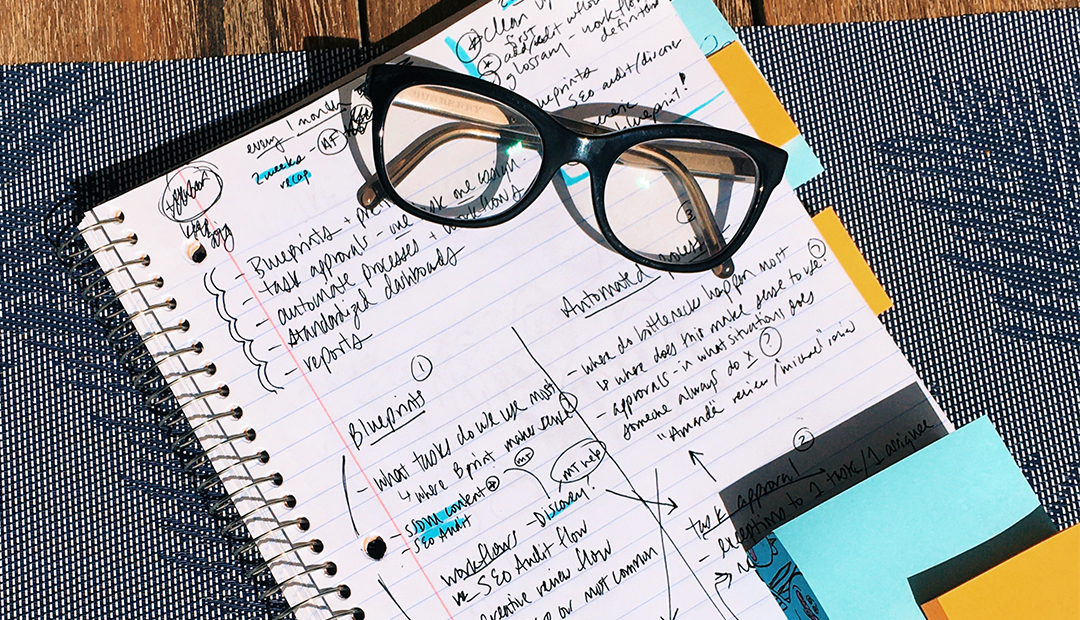 clean up
add/edit workflow
glossary - workflow
definition
Blueprints
SEO audit/discover
blueprint!
every 1 month
MF
2 weeks
recap
- Blueprints +
- task approvals - one task one assign.
- automate processes + workflows
- standardized dashboards
- reports
BURBERRY
①
Blueprints
- what tasks do we use most
↳ where Bprint makes sense?
MF
MF help
- SDM content
- SEO Audit
- Discovery!
workflows
SEO Audit flow
creative review flow
or most common
③
Automated
- where do bottlenecks happen most
↳ where does this make sense to use?
- approvals - in what situations does
someone always do X ?
"Amanda" review / "michael" review
②
Task approval
- exceptions to 1 task / 1 assignee